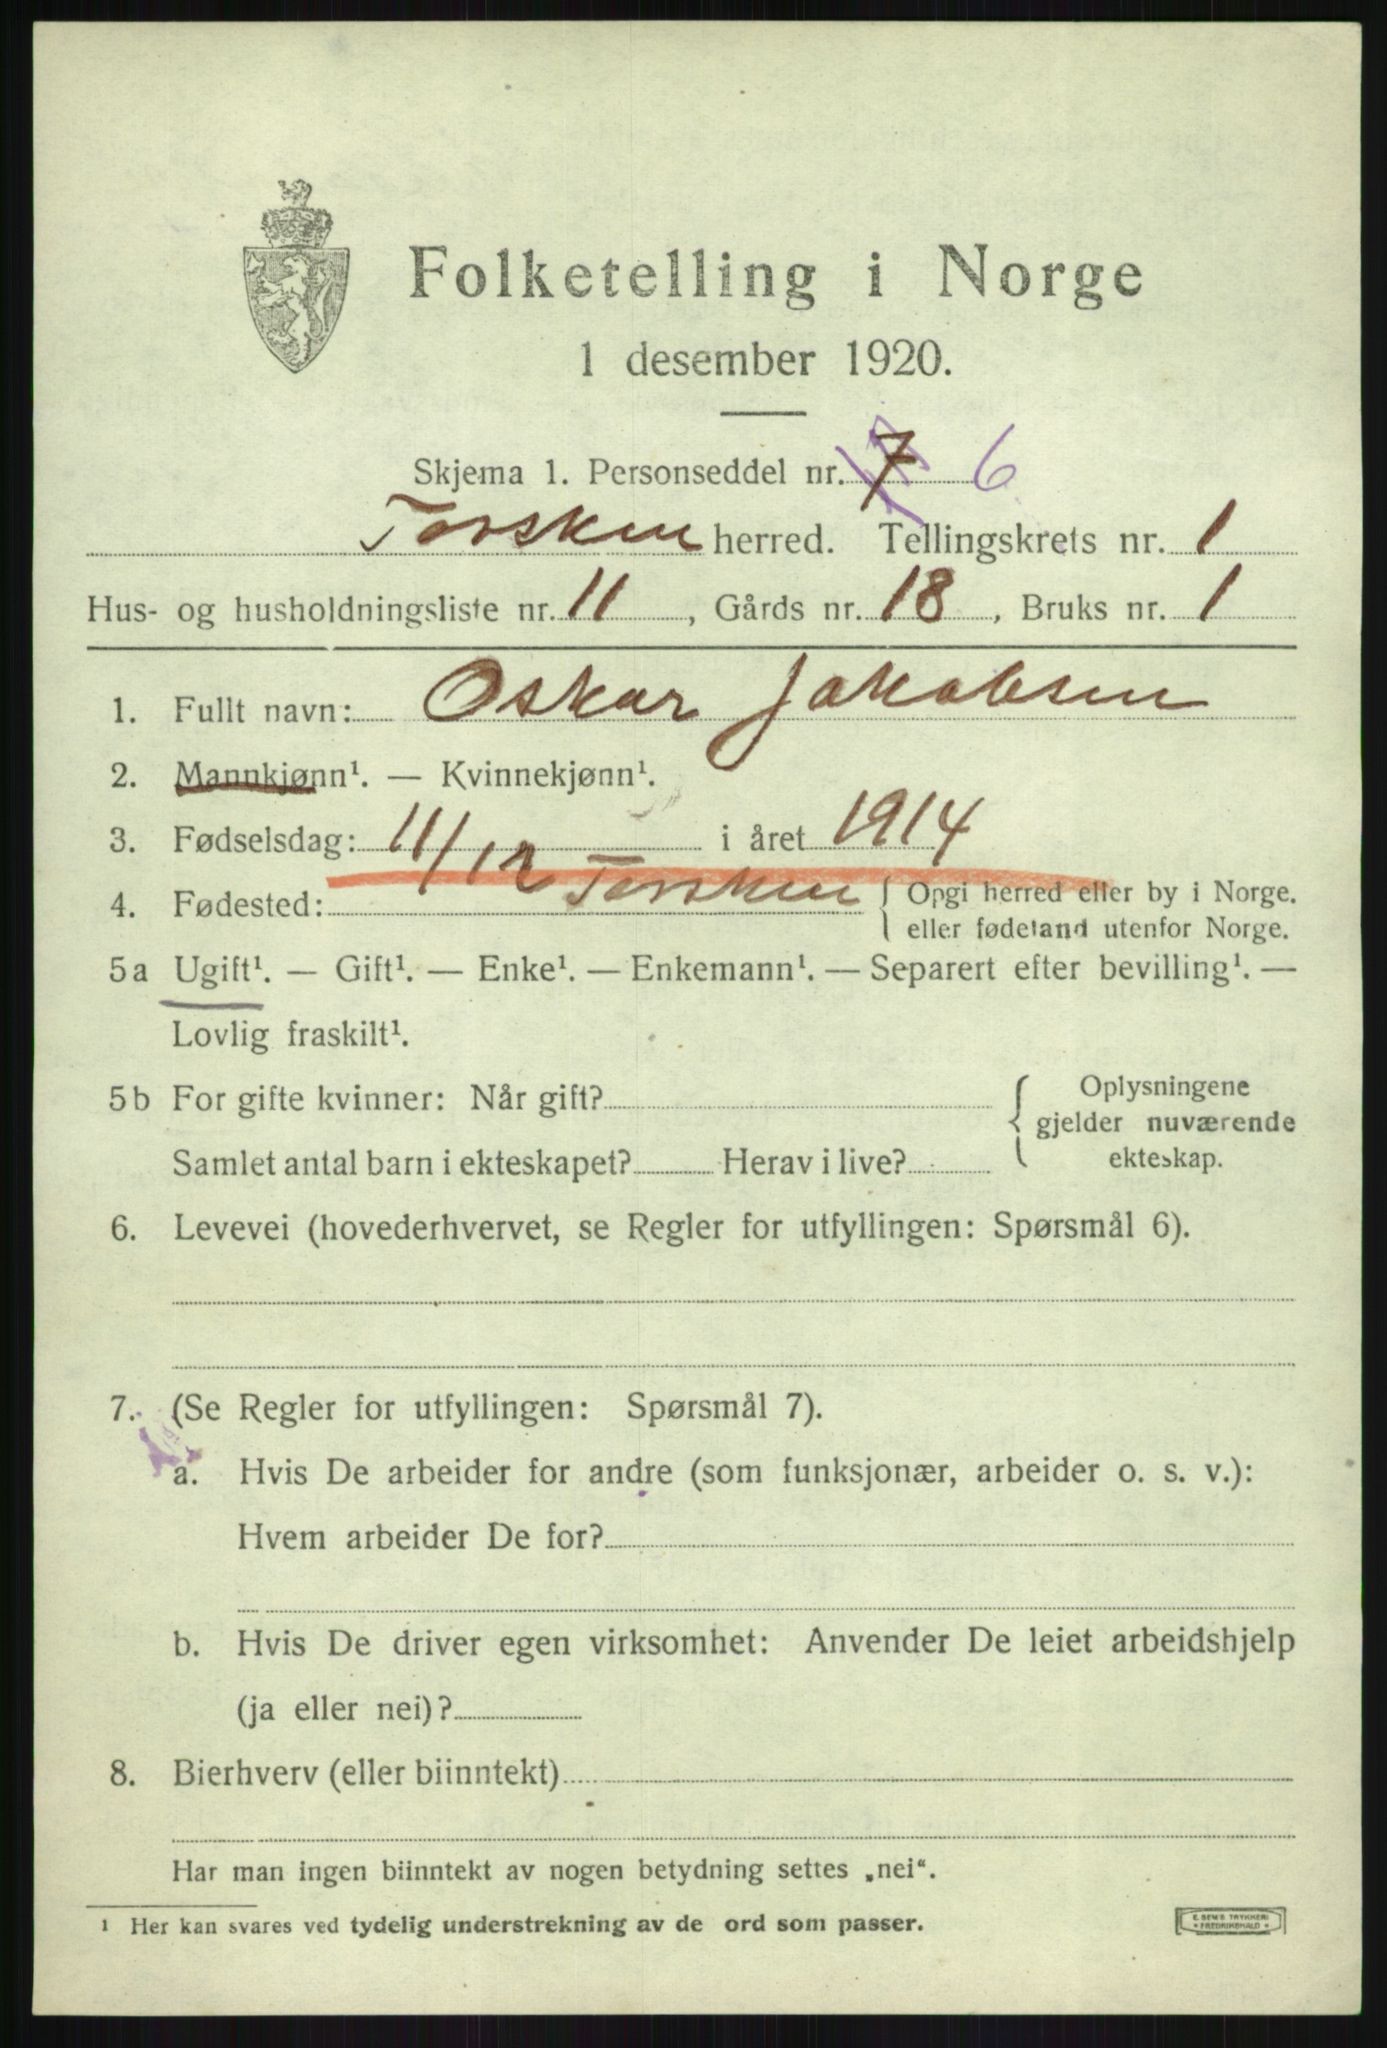 Folketelling i Norge
1 desember 1920.
Skjema 1. Personseddel nr. 7 6
Torsken herred. Tellingskrets nr. 1
Hus- og husholdningsliste nr. 11, Gårds nr. 18, Bruks nr. 1
1. Fullt navn: Oskar Jakobsen
2. Mannkjønn¹. — Kvinnekjønn¹.
3. Fødselsdag: 11/12 i året 1914
4. Fødested: Torsken { Opgi herred eller by i Norge.
eller fødeland utenfor Norge.
5a Ugift¹. — Gift¹. — Enke¹. — Enkemann¹. — Separert efter bevilling¹. —
Lovlig fraskilt¹.
5b For gifte kvinner: Når gift? { Oplysningene
gjelder nuværende
Samlet antal barn i ekteskapet? Herav i live? ekteskap.
6. Levevei (hovederhvervet, se Regler for utfyllingen: Spørsmål 6).
7. (Se Regler for utfyllingen: Spørsmål 7).
a. Hvis De arbeider for andre (som funksjonær, arbeider o. s. v.):
Hvem arbeider De for?
b. Hvis De driver egen virksomhet: Anvender De leiet arbeidshjelp
(ja eller nei)?
8. Bierhverv (eller biinntekt)
Har man ingen biinntekt av nogen betydning settes „nei“.
¹ Her kan svares ved tydelig understrekning av de ord som passer.
E. SEM'S TRYKKERI
FREDRIKSHALD